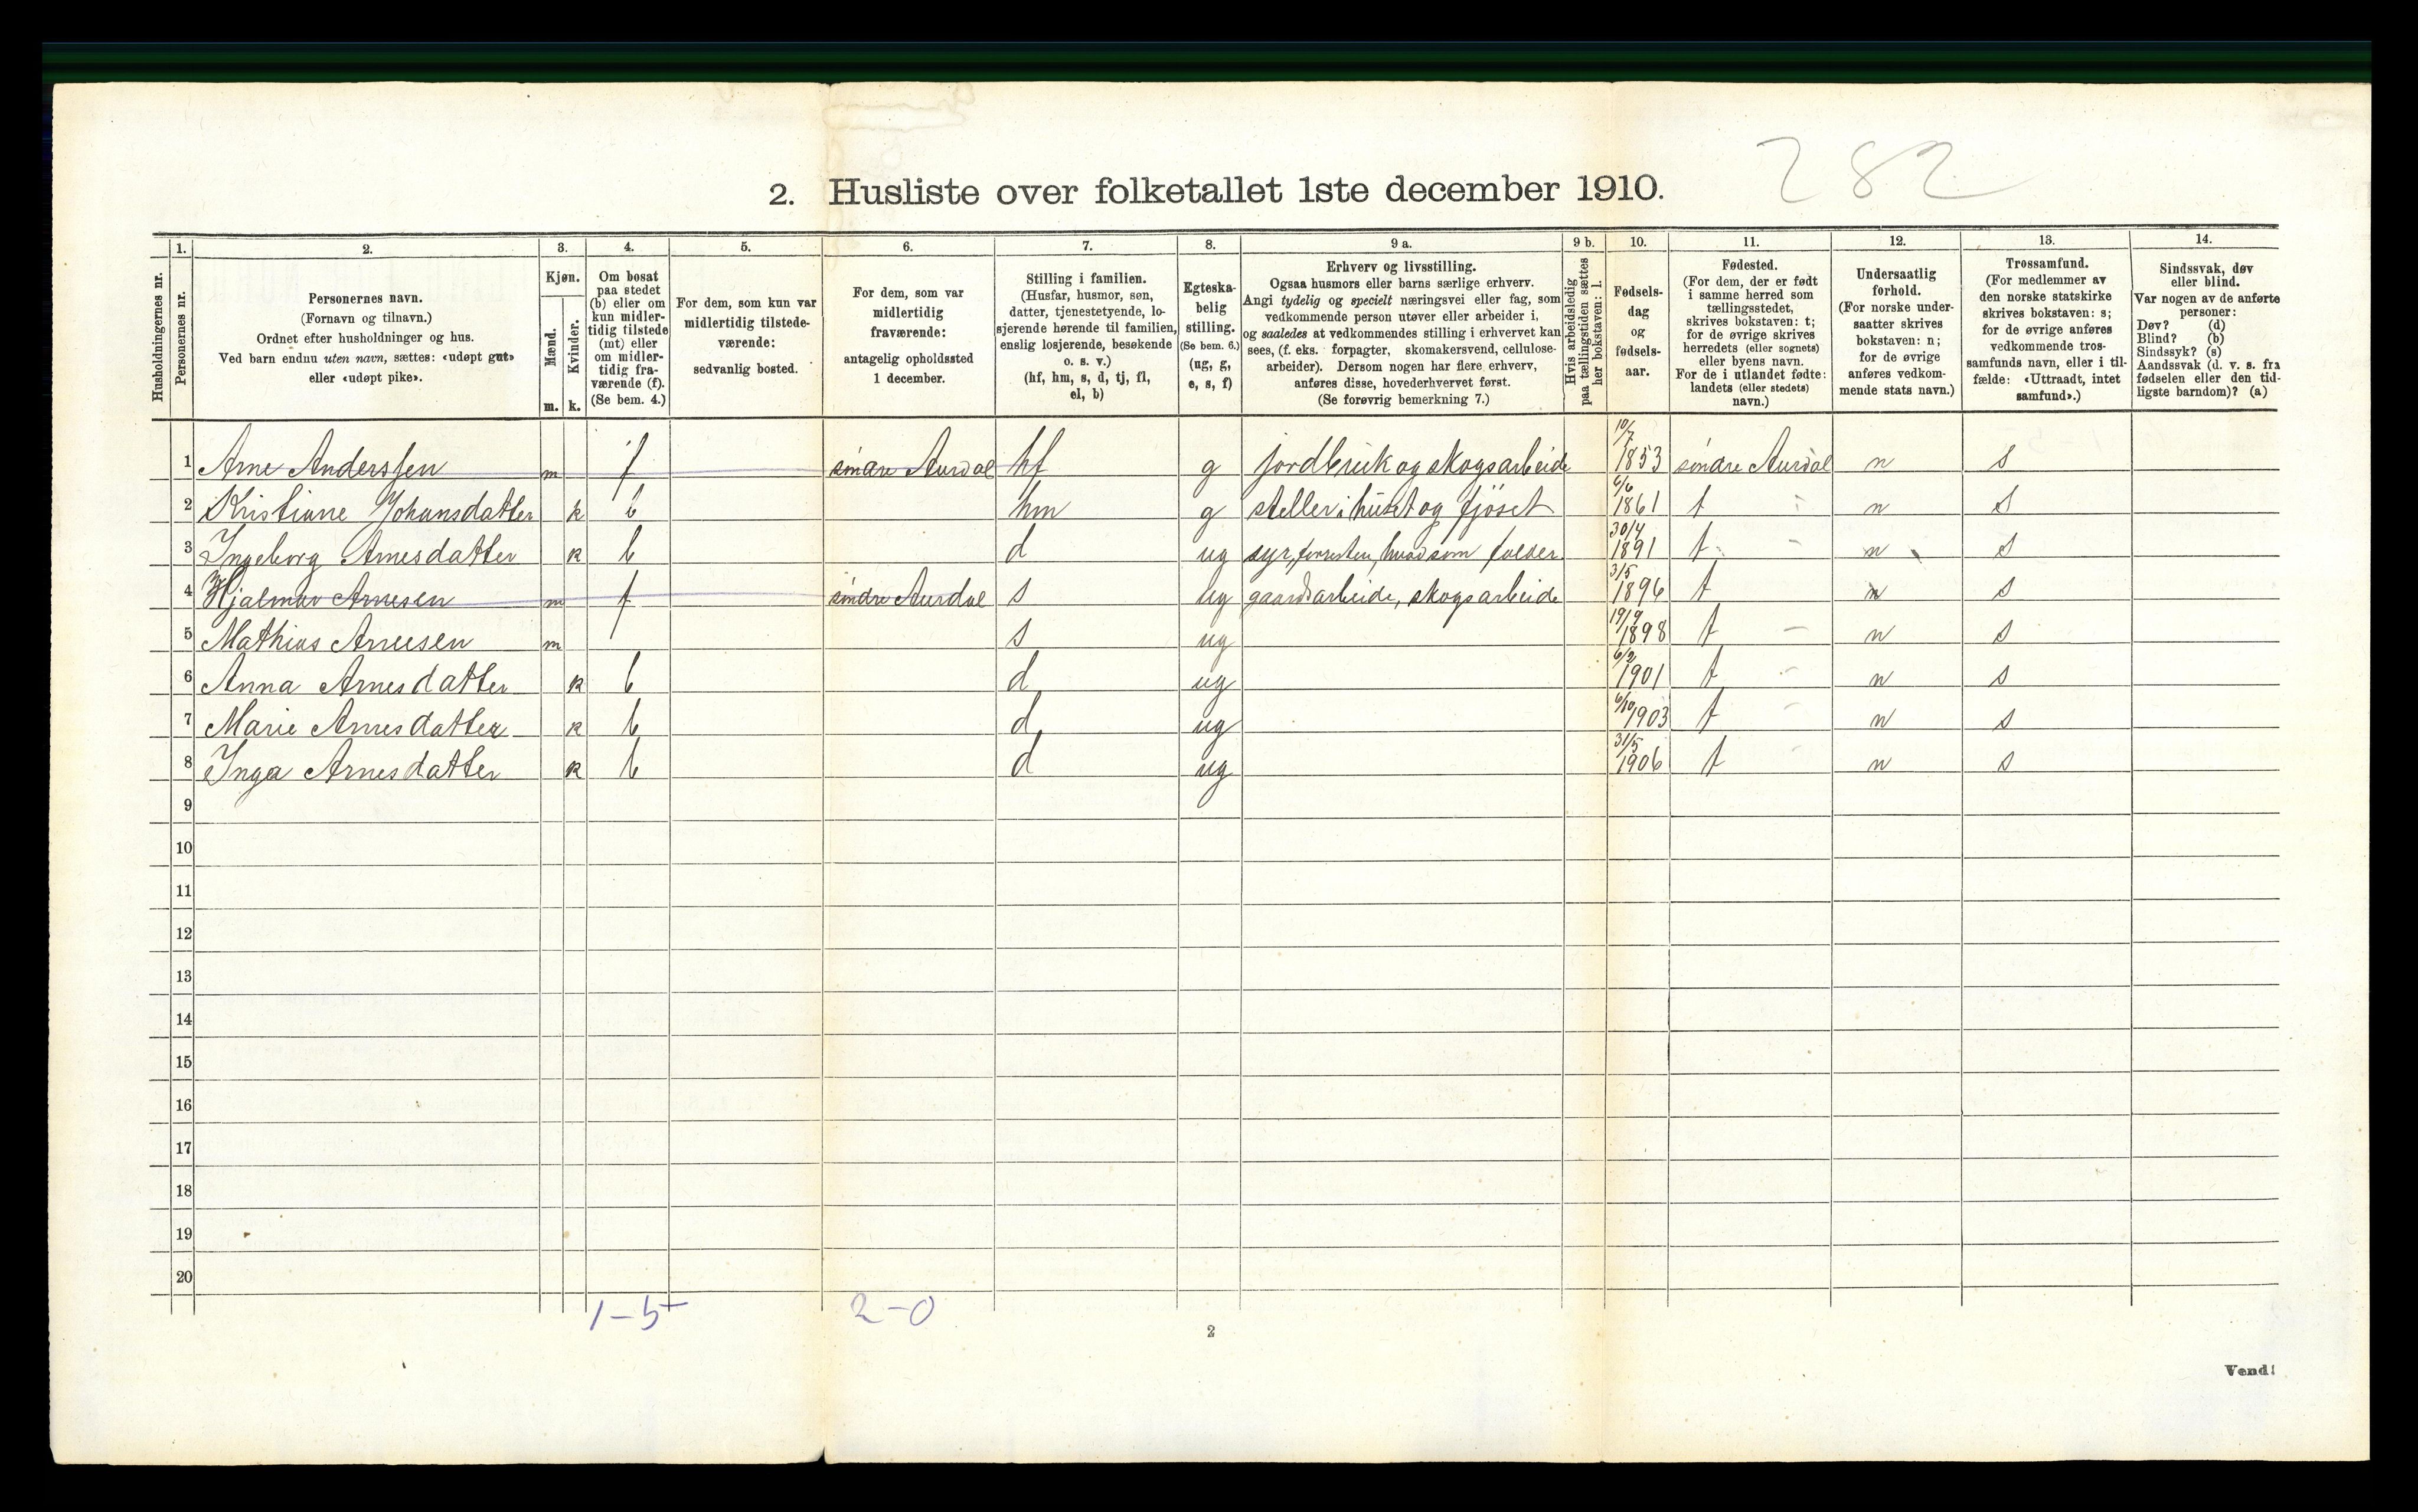 282
2. Husliste over folketallet 1ste december 1910.
Husholdningernes nr.
1. Personernes nr.
2. Personernes navn.
(Fornavn og tilnavn.)
Ordnet efter husholdninger og hus.
Ved barn endnu uten navn, sættes: «udøpt gut»
eller «udøpt pike».
3. Kjøn.
Mænd. m.
Kvinder. k.
4. Om bosat
paa stedet
(b) eller om
kun midler-
tidig tilstede
(mt) eller
om midler-
tidig fra-
værende (f).
(Se bem. 4.)
5. For dem, som kun var
midlertidig tilstede-
værende:
sedvanlig bosted.
6. For dem, som var
midlertidig
fraværende:
antagelig opholdssted
1 december.
7. Stilling i familien.
(Husfar, husmor, søn,
datter, tjenestetyende, lo-
sjerende hørende til familien,
enslig losjerende, besøkende
o. s. v.)
(hf, hm, s, d, tj, fl,
el, b)
8. Egteska-
belig
stilling.
(Se bem. 6.)
(ug, g,
e, s, f)
9 a. Erhverv og livsstilling.
Ogsaa husmors eller barns særlige erhverv.
Angi tydelig og specielt næringsvei eller fag, som
vedkommende person utøver eller arbeider i,
og saaledes at vedkommendes stilling i erhvervet kan
sees, (f. eks. forpagter, skomakersvend, cellulose-
arbeider). Dersom nogen har flere erhverv,
anføres disse, hovederhvervet først.
(Se forøvrig bemerkning 7.)
9 b. Hvis arbeidsledig
paa tællingstiden sættes
her bokstaven: l.
10. Fødsels-
dag
og
fødsels-
aar.
11. Fødested.
(For dem, der er født
i samme herred som
tællingsstedet,
skrives bokstaven: t;
for de øvrige skrives
herredets (eller sognets)
eller byens navn.
For de i utlandet fødte:
landets (eller stedets)
navn.)
12. Undersaatlig
forhold.
(For norske under-
saatter skrives
bokstaven: n;
for de øvrige
anføres vedkom-
mende stats navn.)
13. Trossamfund.
(For medlemmer av
den norske statskirke
skrives bokstaven: s;
for de øvrige anføres
vedkommende tros-
samfunds navn, eller i til-
fælde: «Uttraadt, intet
samfund».)
14. Sindssvak, døv
eller blind.
Var nogen av de anførte
personer:
Døv? (d)
Blind? (b)
Sindssyk? (s)
Aandssvak (d. v. s. fra
fødselen eller den tid-
ligste barndom)? (a)
1 Arne Anderssen m f søndre Aurdal hf g jordbruk og skogsarbeide 10/7 1853 søndre Aurdal n s
2 Kristiane Johansdatter k b hm g steller i huset og fjøset 6/6 1861 t n s
3 Ingeborg Arnesdatter k b d ug syr, forresten, hvad som falder 30/4 1891 t n s
4 Hjalmar Arnesen m f søndre Aurdal s ug gaardsarbeide, skogsarbeide 3/5 1896 t n s
5 Mathias Arnesen m s ug 19/9 1898 t n s
6 Anna Arnesdatter k b d ug 6/2 1901 t n s
7 Marie Arnesdatter k b d ug 6/10 1903 t n s
8 Inga Arnesdatter k b d ug 31/5 1906 t n s
9
10
11
12
13
14
15
16
17
18
19
20
1-5 2-0
2
Vend!